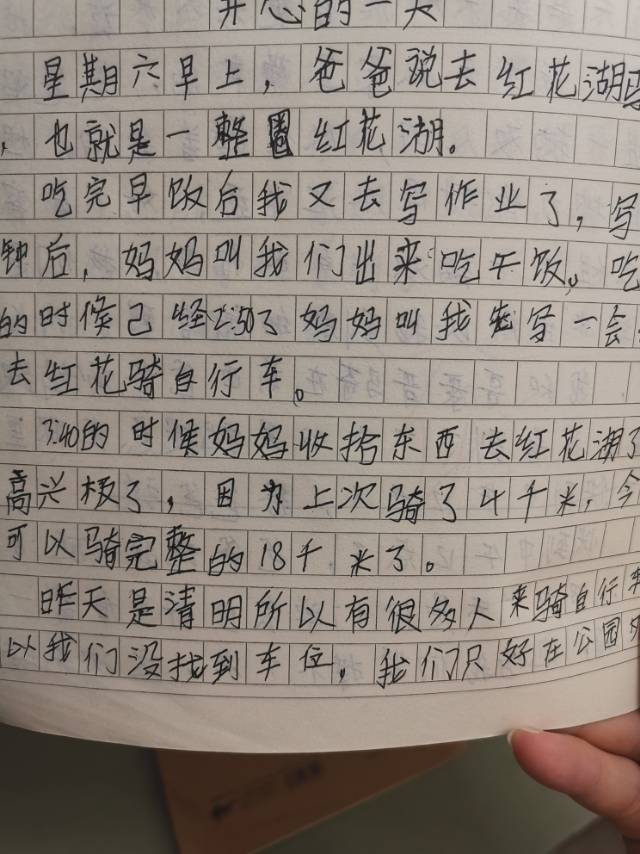 开心的一天
星期六早上，爸爸说去红花湖
，也就是一整圈红花湖。
吃完早饭后我又去写作业了，写
钟后，妈妈叫我们出来吃午饭。吃
的时候己经2:50了妈妈叫我先写一会
去红花骑自行车。
3:40的时候妈妈收拾东西去红花湖了
高兴极了，因为上次骑了4千米，今
可以骑完整的18千米了。
昨天是清明所以有很多人来骑自行车
以我们没找到车位，我们只好在公园